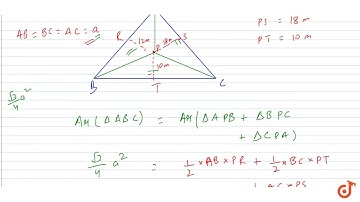 AB = BC = AC = a
PS = 18 m
PT = 10 m
R
12m
18m
S
P
10m
B
T
C
√3/4 a²
Ar(ΔABC) = Ar(ΔAPB + ΔBPC
+ ΔCPA)
√3/4 a² = 1/2 × AB × PR + 1/2 × BC × PT